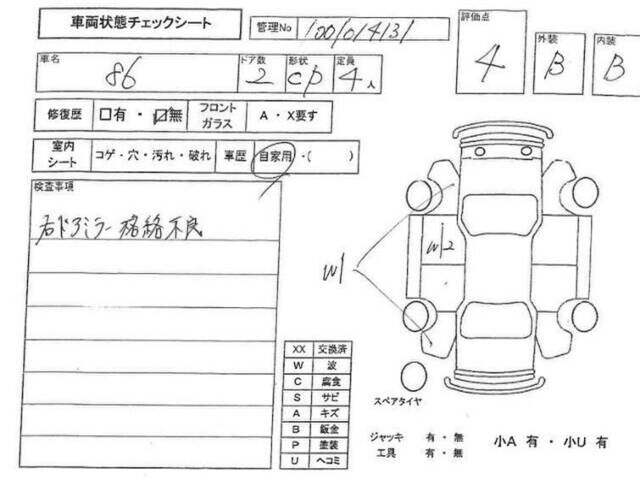 車両状態チェックシート
管理No 1001014131
評価点 4
外装 B
内装 B
車名 86
ドア数 2
形状 CP
定員 4人
修復歴 □有・☑無
フロントガラス A・X要す
室内シート コゲ・穴・汚れ・破れ
車歴 自家用・( )
検査事項
右ドアミラー格納不良
W1
W2
XX 交換済
W 波
C 腐食
S サビ
A キズ
B 鈑金
P 塗装
U ヘコミ
スペアタイヤ
ジャッキ 有・無
工具 有・無
小A 有・小U 有